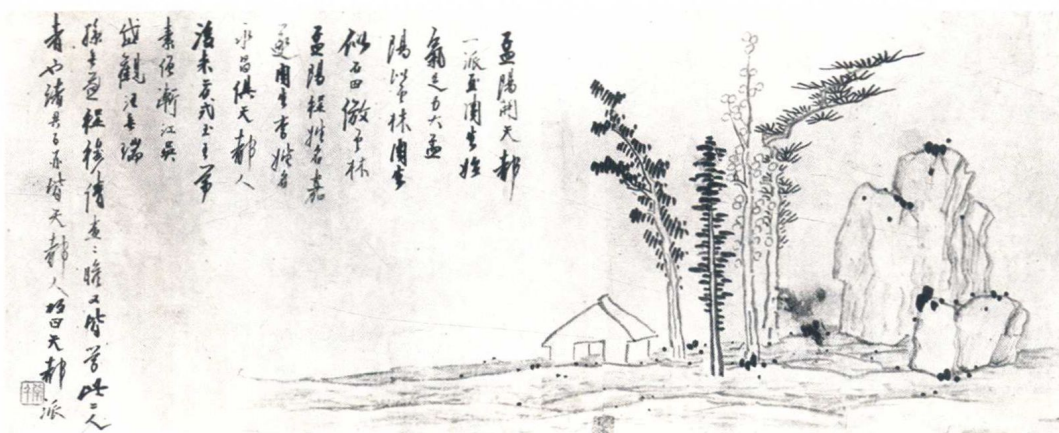 孟陽開天都
一派至周生始
氣足力大孟
陽似云林周生
似石田倣云林
孟陽程姓名嘉
燧周生李姓名
永昌俱天都人
後來方式玉王尊
素僧漸江吳
岱觀汪无瑞
孫无逸程穆倩查二瞻又皆學此二人
者也諸君子並皆天都人故曰天都派